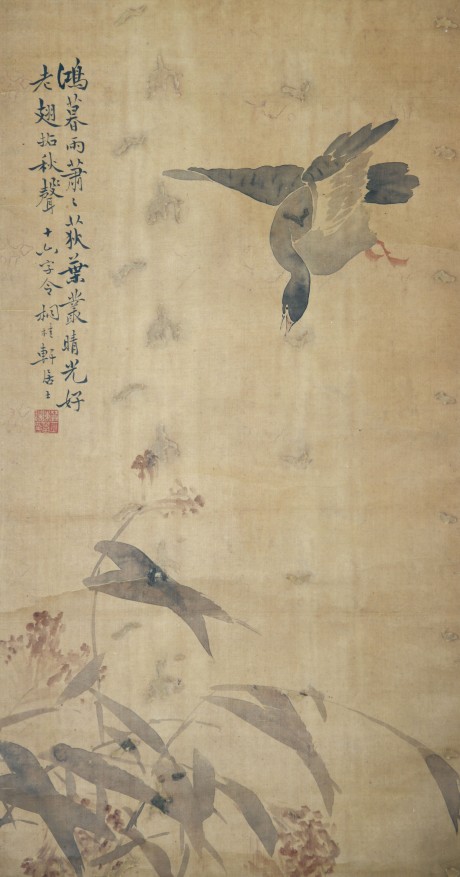 鴻暮雨蕭〻荻葉叢晴光好
老翅拈秋聲 十六字令 桐軒居士